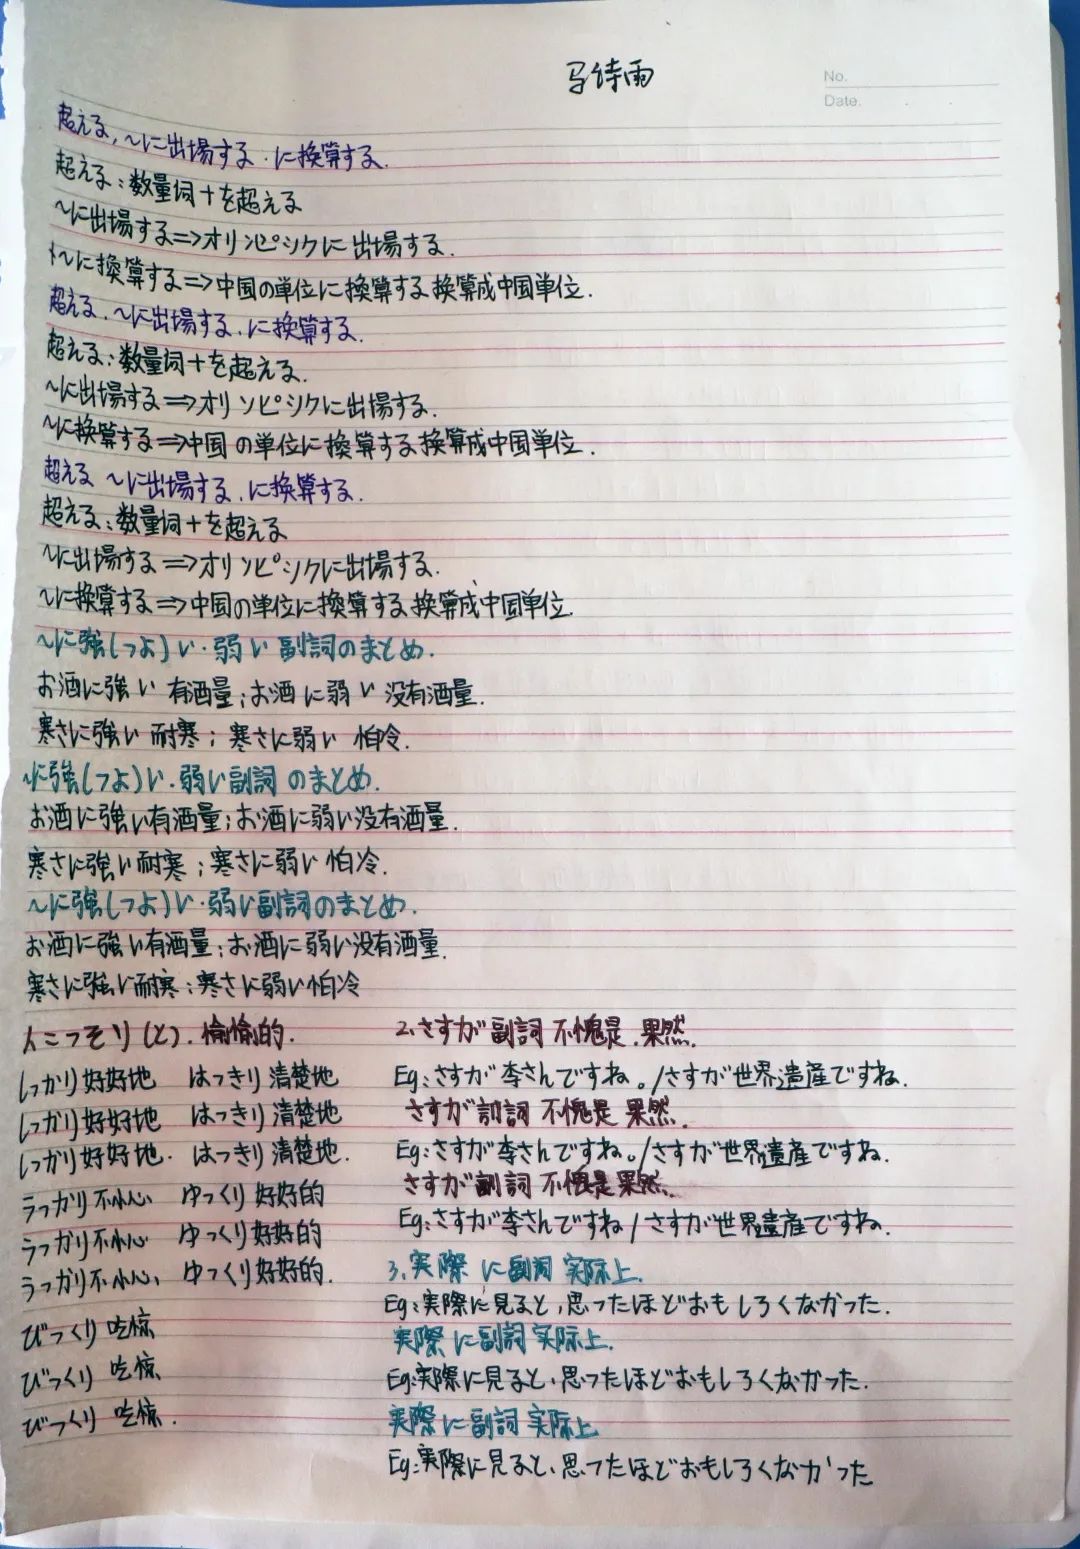 马诗雨
No.
Date.
超える,~に出場する.に換算する.
超える:数量词+を超える
~に出場する=>オリンピシクに出場する.
~に換算する=>中国の単位に換算する换算成中国单位.
超える.~に出場する.に換算する.
超える:数量词+を超える.
~に出場する=>オリンピシクに出場する.
~に換算する=>中国の単位に換算する换算成中国单位.
超える ~に出場する.に換算する.
超える:数量词+を超える
~に出場する=>オリンピシクに出場する.
~に換算する=>中国の単位に換算する换算成中国单位.
~に強(つよ)い·弱い副詞のまとめ.
お酒に強い 有酒量;お酒に弱い 没有酒量.
寒さに強い 耐寒;寒さに弱い 怕冷.
~に強(つよ)い·弱い副詞のまとめ.
お酒に強い有酒量;お酒に弱い没有酒量.
寒さに強い耐寒;寒さに弱い怕冷.
~に強(つよ)い·弱い副詞のまとめ.
お酒に強い有酒量;お酒に弱い没有酒量.
寒さに強い耐寒;寒さに弱い怕冷
1.こっそり(と).偷偷的.
しっかり好好地 はっきり清楚地
しっかり好好地 はっきり清楚地
しっかり好好地. はっきり清楚地.
うっかり不小心 ゆっくり好好的
うっかり不小心 ゆっくり好好的
うっかり不小心, ゆっくり好好的.
びっくり吃惊
びっくり 吃惊
びっくり 吃惊.
2.さすが副詞 不愧是.果然.
Eg:さすが李さんですね。/さすが世界遺産ですね.
さすが副詞 不愧是 果然.
Eg:さすが李さんですね。/さすが世界遺産ですね.
さすが副詞 不愧是果然.
Eg:さすが李さんですね/さすが世界遺産ですね.
3.実際に副詞 实际上.
Eg:実際に見ると,思ったほどおもしろくなかった.
実際に副詞 实际上.
Eg:実際に見ると,思ったほどおもしろくなかった.
実際に副詞 实际上
Eg:実際に見ると,思ったほどおもしろくなかった